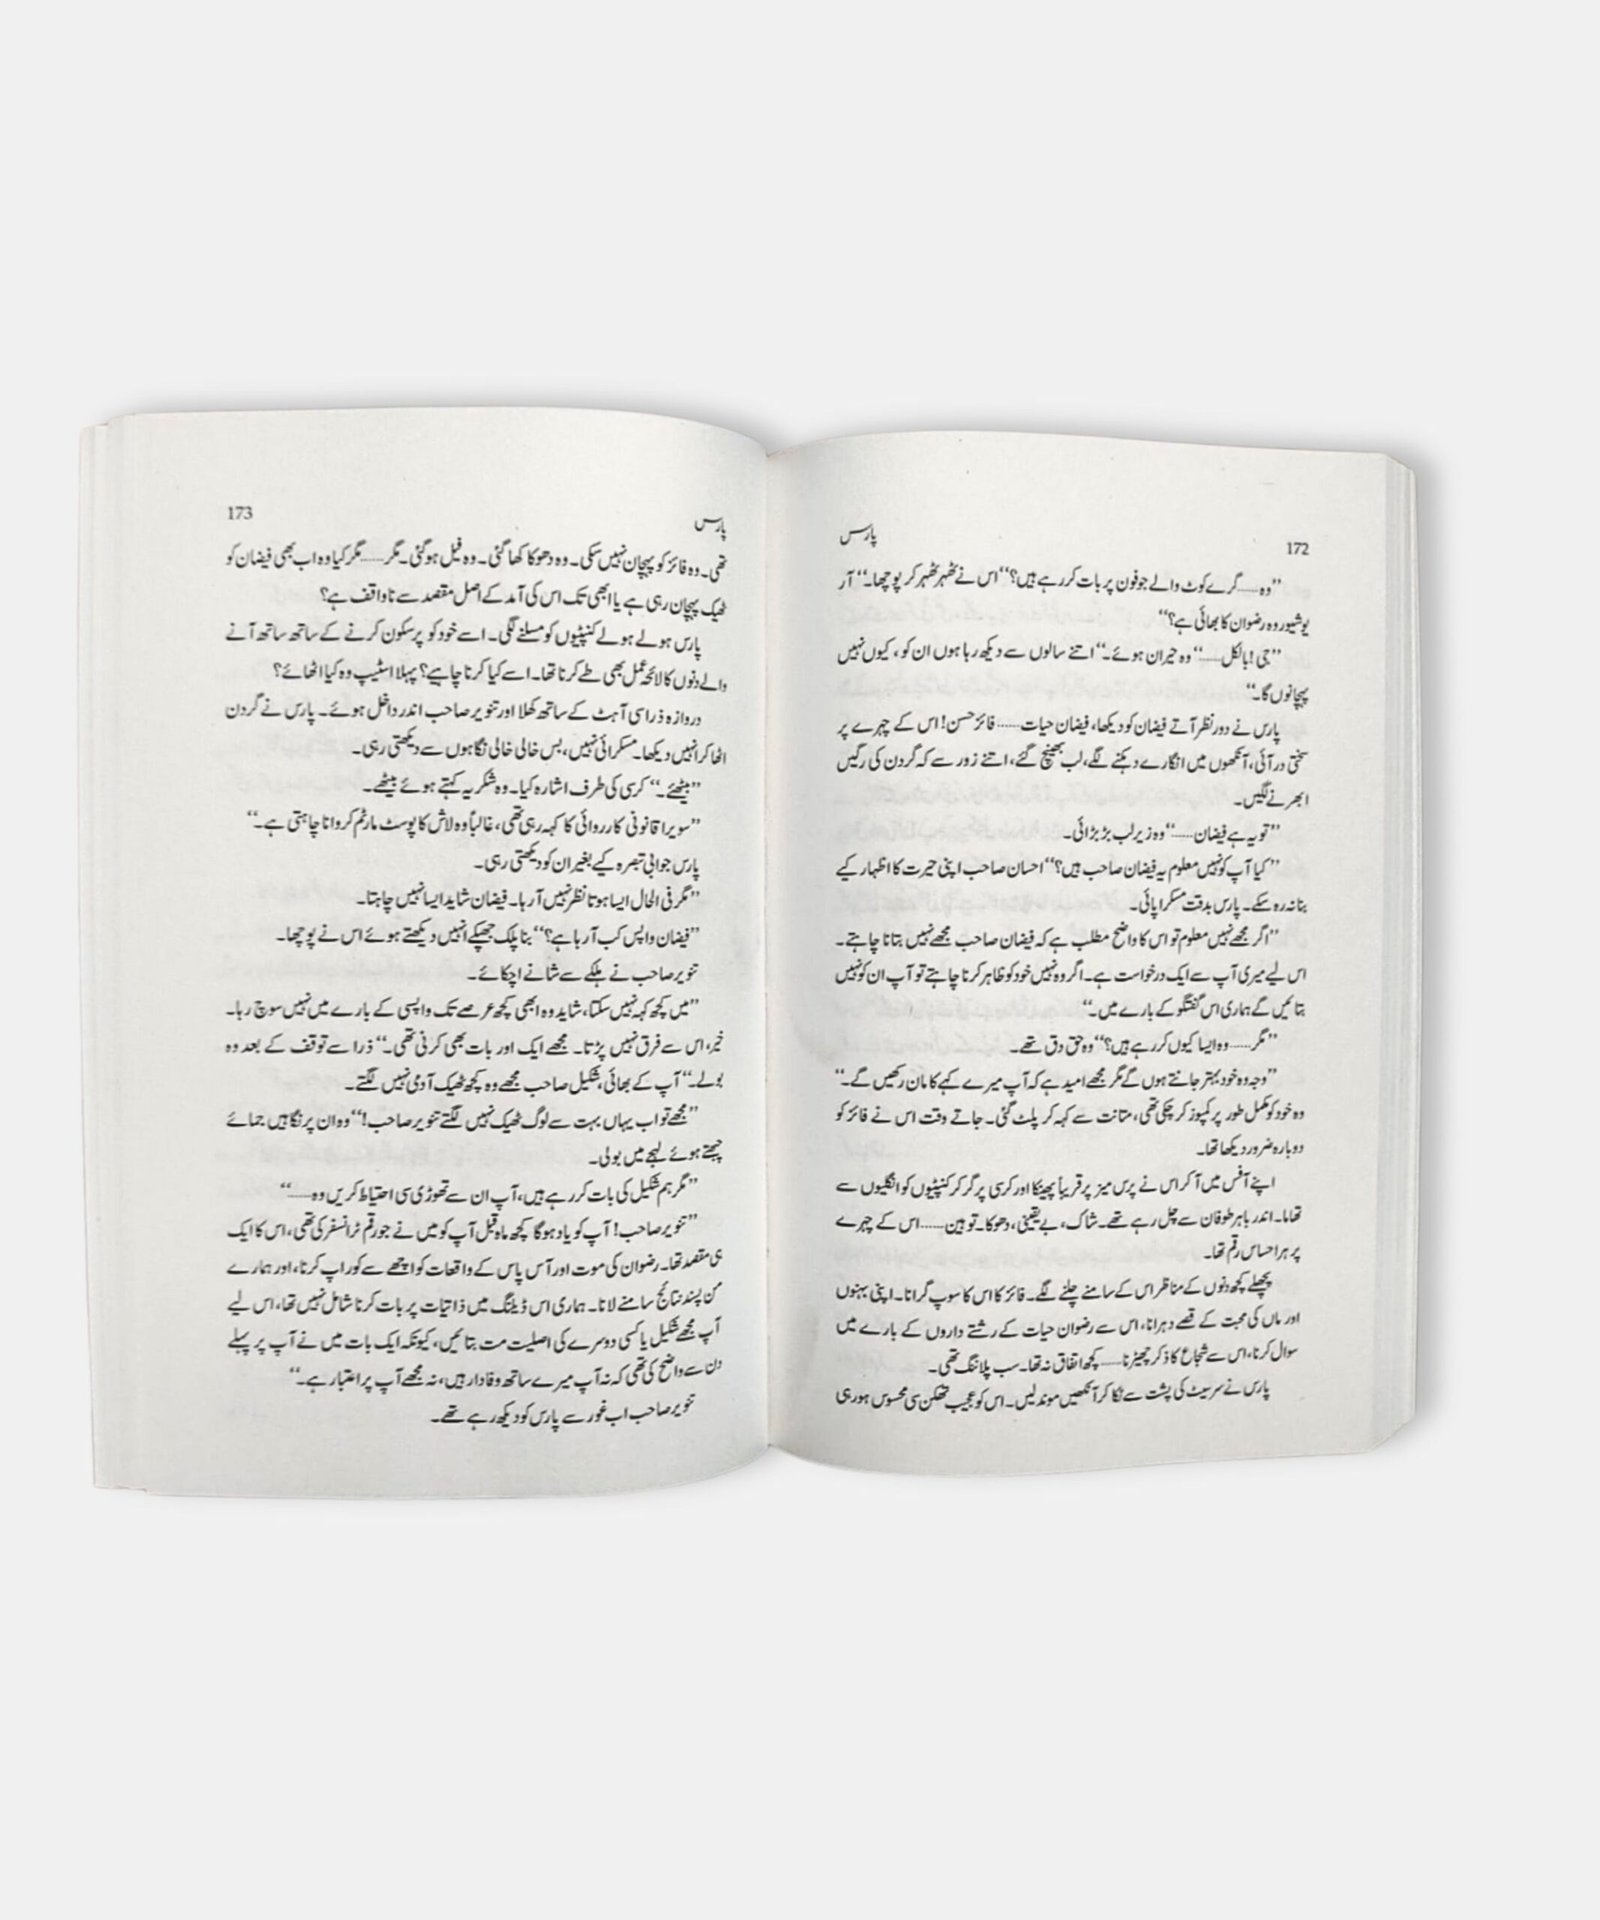 172
پارس
”وہ……گرے کوٹ والے جو فون پر بات کر رہے ہیں؟“ اس نے ٹھہر ٹھہر کر پوچھا۔ ”آر
یو شیور وہ رضوان کا بھائی ہے؟“
”جی! بالکل……“ وہ حیران ہوئے۔ ”اتنے سالوں سے دیکھ رہا ہوں ان کو، کیوں نہیں
پہچانوں گا۔“
پارس نے دور نظر آتے فیضان کو دیکھا، فیضان حیات…… فائز حسن! اس کے چہرے پر
سختی در آئی، آنکھوں میں انگارے دہکنے لگے، لب بھینچ گئے، اتنے زور سے کہ گردن کی رگیں
ابھرنے لگیں۔
”تو یہ ہے فیضان……“ وہ زیر لب بڑبڑائی۔
”کیا آپ کو نہیں معلوم یہ فیضان صاحب ہیں؟“ احسان صاحب اپنی حیرت کا اظہار کیے
بنا نہ رہ سکے۔ پارس بدقت مسکرا پائی۔
”اگر مجھے نہیں معلوم تو اس کا واضح مطلب ہے کہ فیضان صاحب مجھے نہیں بتانا چاہتے۔
اس لیے میری آپ سے ایک درخواست ہے۔ اگر وہ نہیں خود کو ظاہر کرنا چاہتے تو آپ ان کو نہیں
بتائیں گے ہماری اس گفتگو کے بارے میں۔“
”مگر…… وہ ایسا کیوں کر رہے ہیں؟“ وہ حق دق تھے۔
”وجہ وہ خود بہتر جانتے ہوں گے مگر مجھے امید ہے کہ آپ میرے کہے کا مان رکھیں گے۔“
وہ خود کو مکمل طور پر کمپوز کر چکی تھی، متانت سے کہہ کر پلٹ گئی۔ جاتے وقت اس نے فائز کو
دوبارہ ضرور دیکھا تھا۔
اپنے آفس میں آ کر اس نے پرس میز پر قریباً پھینکا اور کرسی پر گر کر کنپٹیوں کو انگلیوں سے
تھاما۔ اندر باہر طوفان سے چل رہے تھے۔ شاک، بے یقینی، دھوکا۔ توہین…… اس کے چہرے
پر ہر احساس رقم تھا۔
پچھلے کچھ دنوں کے مناظر اس کے سامنے چلنے لگے۔ فائز کا اس کا سوپ گرانا۔ اپنی بہنوں
اور ماں کی محبت کے قصے دہرانا، اس سے رضوان حیات کے رشتے داروں کے بارے میں
سوال کرنا، اس سے شجاع کا ذکر چھیڑنا…… کچھ اتفاق نہ تھا۔ سب پلاننگ تھی۔
پارس نے سر سیٹ کی پشت سے لگا کر آنکھیں موند لیں۔ اس کو عجیب تھکن سی محسوس ہو رہی
پارس
173
تھی۔ وہ فائز کو پہچان نہیں سکی۔ وہ دھوکا کھا گئی۔ وہ فیل ہو گئی۔ مگر……مگر کیا وہ اب بھی فیضان کو
ٹھیک پہچان رہی ہے یا ابھی تک اس کی آمد کے اصل مقصد سے ناواقف ہے؟
پارس ہولے ہولے کنپٹیوں کو مسلنے لگی۔ اسے خود کو پرسکون کرنے کے ساتھ ساتھ آنے
والے دنوں کا لائحہ عمل بھی طے کرنا تھا۔ اسے کیا کرنا چاہیے؟ پہلا اسٹیپ وہ کیا اٹھائے؟
دروازہ ذرا سی آہٹ کے ساتھ کھلا اور تنویر صاحب اندر داخل ہوئے۔ پارس نے گردن
اٹھا کر انہیں دیکھا۔ مسکرائی نہیں، بس خالی خالی نگاہوں سے دیکھتی رہی۔
”بیٹھئے۔“ کرسی کی طرف اشارہ کیا۔ وہ شکریہ کہتے ہوئے بیٹھے۔
”سویرا قانونی کارروائی کا کہہ رہی تھی، غالباً وہ لاش کا پوسٹ مارٹم کروانا چاہتی ہے۔“
پارس جوابی تبصرہ کیے بغیر ان کو دیکھتی رہی۔
”مگر فی الحال ایسا ہوتا نظر نہیں آ رہا۔ فیضان شاید ایسا نہیں چاہتا۔
”فیضان واپس کب آ رہا ہے؟“ بنا پلک جھپکے انہیں دیکھتے ہوئے اس نے پوچھا۔
تنویر صاحب نے ہلکے سے شانے اچکائے۔
”میں کچھ کہہ نہیں سکتا، شاید وہ ابھی کچھ عرصے تک واپسی کے بارے میں نہیں سوچ رہا۔
خیر، اس سے فرق نہیں پڑتا۔ مجھے ایک اور بات بھی کرنی تھی۔“ ذرا سے توقف کے بعد وہ
بولے۔ ”آپ کے بھائی، شکیل صاحب مجھے وہ کچھ ٹھیک آدمی نہیں لگتے۔
”مجھے تو اب یہاں بہت سے لوگ ٹھیک نہیں لگتے تنویر صاحب!“ وہ ان پر نگاہیں جمائے
چبھتے ہوئے لہجے میں بولی۔
”مگر ہم شکیل کی بات کر رہے ہیں، آپ ان سے تھوڑی سی احتیاط کریں وہ……“
”تنویر صاحب! آپ کو یاد ہو گا کچھ ماہ قبل آپ کو میں نے جو رقم ٹرانسفر کی تھی، اس کا ایک
ہی مقصد تھا۔ رضوان کی موت اور آس پاس کے واقعات کو اچھے سے کور اپ کرنا، اور ہمارے
من پسند نتائج سامنے لانا۔ ہماری اس ڈیلنگ میں ذاتیات پر بات کرنا شامل نہیں تھا، اس لیے
آپ مجھے شکیل یا کسی دوسرے کی اصلیت مت بتائیں، کیونکہ ایک بات میں نے آپ پر پہلے
دن سے واضح کی تھی کہ نہ آپ میرے ساتھ وفادار ہیں، نہ مجھے آپ پر اعتبار ہے۔“
تنویر صاحب اب غور سے پارس کو دیکھ رہے تھے۔